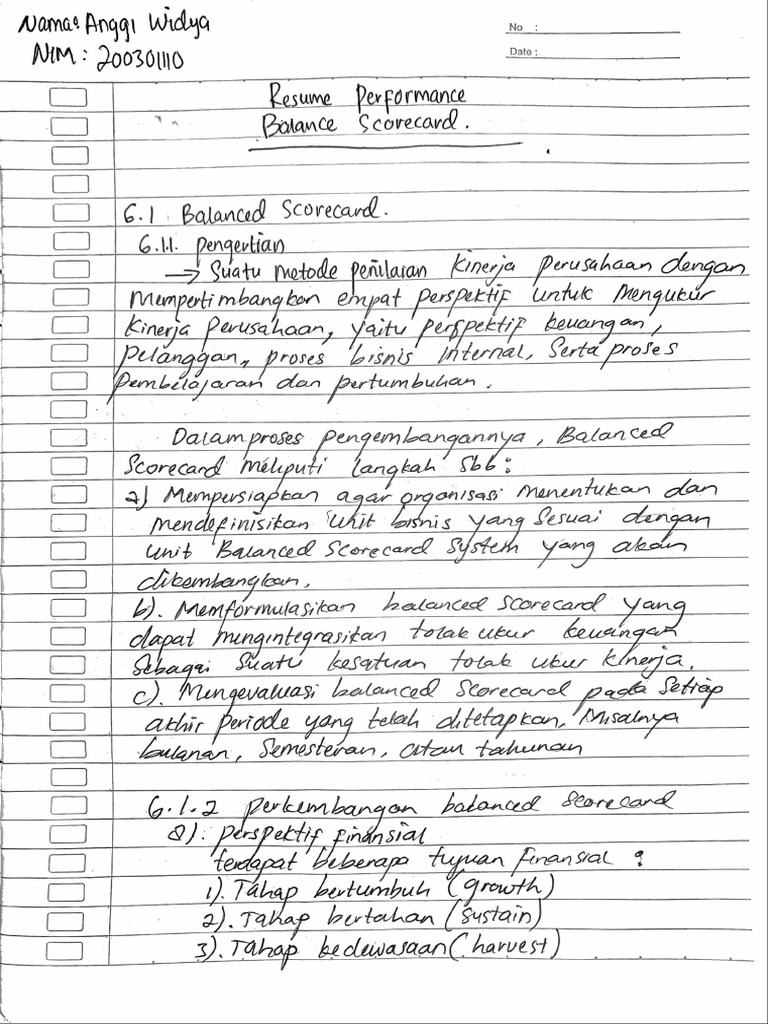 Nama: Anggi Widya
NIM: 200301110
No :
Date :
Resume Performance
Balance Scorecard.
6.1 Balanced Scorecard.
6.1.1. pengertian
→ Suatu metode penilaian kinerja perusahaan dengan
mempertimbangkan empat perspektif untuk mengukur
kinerja perusahaan, yaitu perspektif keuangan,
pelanggan, proses bisnis internal, serta proses
pembelajaran dan pertumbuhan.
Dalam proses pengembangannya, Balanced
Scorecard meliputi langkah sbb:
a) Mempersiapkan agar organisasi menentukan dan
mendefinisikan unit bisnis yang sesuai dengan
unit Balanced Scorecard System yang akan
dikembangkan.
b). Memformulasikan balanced scorecard yang
dapat mengintegrasikan tolak ukur keuangan
sebagai suatu kesatuan tolak ukur kinerja.
c). Mengevaluasi balanced scorecard pada setiap
akhir periode yang telah ditetapkan, Misalnya
bulanan, Semesteran, atau tahunan
6.1.2 perkembangan balanced scorecard
a). perspektif finansial
terdapat beberapa tujuan finansial :
1). Tahap bertumbuh (growth)
2). Tahap bertahan (sustain)
3). Tahap kedewasaan (harvest)